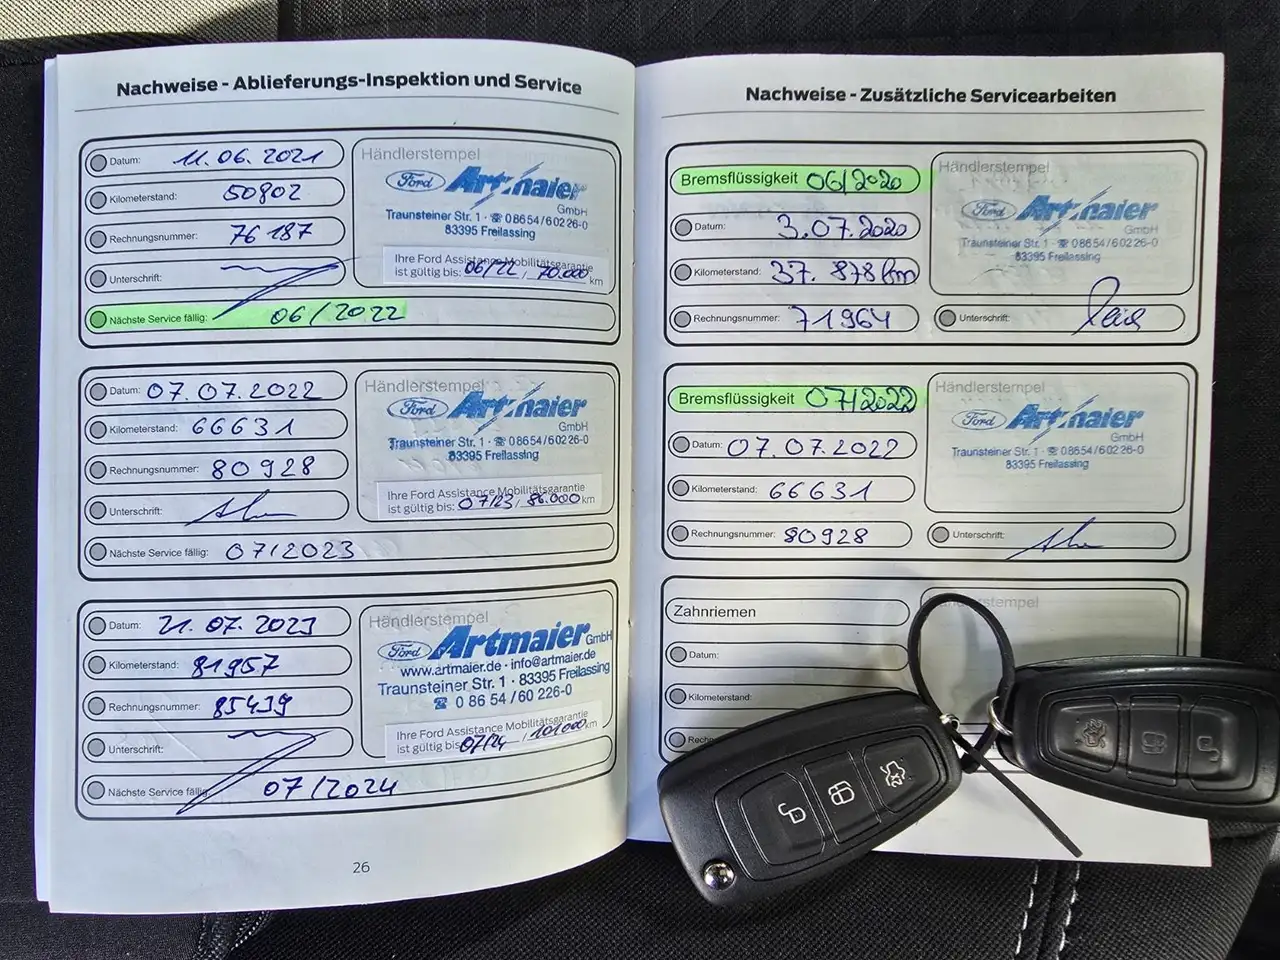 Nachweise - Ablieferungs-Inspektion und Service
Datum: 11.06.2021
Kilometerstand: 50802
Rechnungsnummer: 76187
Unterschrift:
Nächste Service fällig: 06/2022
Händlerstempel
Ford Artmaier
GmbH
Traunsteiner Str. 1 · ☎ 08654/60226-0
83395 Freilassing
Ihre Ford Assistance Mobilitätsgarantie
ist gültig bis: 06/22 / 70.000 km
Datum: 07.07.2022
Kilometerstand: 66631
Rechnungsnummer: 80928
Unterschrift:
Nächste Service fällig: 07/2023
Händlerstempel
Ford Artmaier
GmbH
Traunsteiner Str. 1 · ☎ 08654/60226-0
83395 Freilassing
Ihre Ford Assistance Mobilitätsgarantie
ist gültig bis: 07/23 / 86.000 km
Datum: 21.07.2023
Kilometerstand: 81957
Rechnungsnummer: 85439
Unterschrift:
Nächste Service fällig: 07/2024
Händlerstempel
Ford Artmaier GmbH
www.artmaier.de · info@artmaier.de
Traunsteiner Str. 1 · 83395 Freilassing
☎ 0 86 54 / 60 226-0
Ihre Ford Assistance Mobilitätsgarantie
ist gültig bis: 07/24 / 101.000 km
26
Nachweise - Zusätzliche Servicearbeiten
Bremsflüssigkeit 06/2020
Datum: 3.07.2020
Kilometerstand: 37.878 km
Rechnungsnummer: 71964
Händlerstempel
Ford Artmaier
GmbH
Traunsteiner Str. 1 · ☎ 08654/60226-0
83395 Freilassing
Unterschrift:
Bremsflüssigkeit 07/2022
Datum: 07.07.2022
Kilometerstand: 66631
Rechnungsnummer: 80928
Händlerstempel
Ford Artmaier
GmbH
Traunsteiner Str. 1 · ☎ 08654/60226-0
83395 Freilassing
Unterschrift:
Zahnriemen
Datum:
Kilometerstand:
Rechn
Händlerstempel